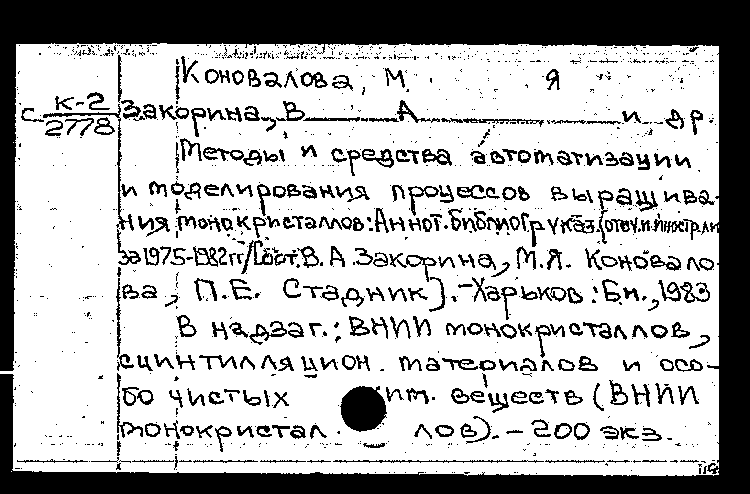 Коновалова, М Я
с К-2/2778 Закорина, В А и др.
Методы и средства автоматизации
и моделирования процессов выращива-
ния монокристаллов: Аннот. библиогр указ. (отеч. и иностр. ли
за 1975-1982 гг/[Сост. В. А. Закорина, М.Я. Коновало-
ва, П.Е. Стадник].-Харьков: Б.и., 1983
В надзаг.: ВНИИ монокристаллов,
сцинтилляцион. материалов и осо-
бо чистых хим. веществ (ВНИИ
монокристал. лов). - 200 экз.